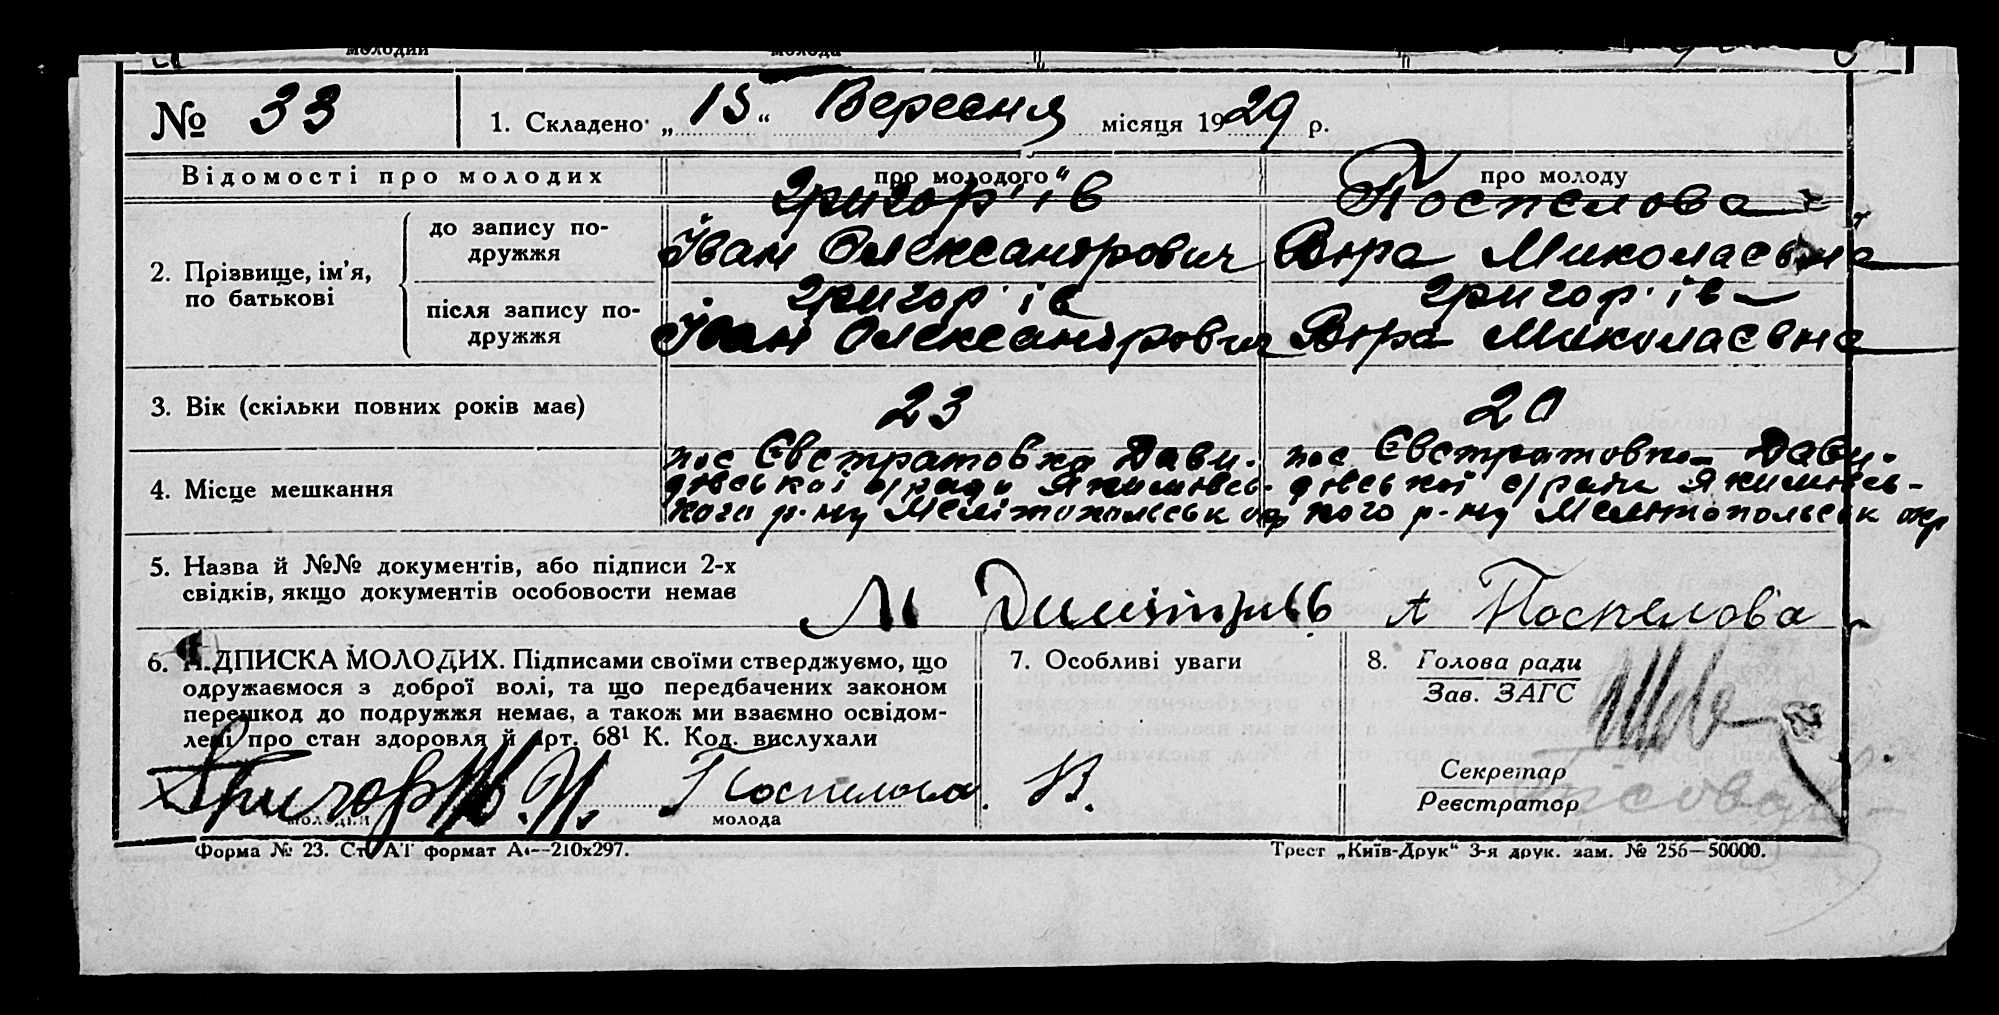 молодий молода
№ 33 1. Складено „15“ Вересня місяця 1929 р.
Відомості про молодих про молодого про молоду
2. Прізвище, ім'я, по батькові
до запису подружжя
Григор'їв
Іван Олександрович
Поспелова
Віра Миколаєвна
після запису подружжя
Григор'їв
Іван Олександрович
Григор'їв
Віра Миколаєвна
3. Вік (скільки повних років має) 23 20
4. Місце мешкання
пос Євстратовка Дави-
дівської с/ради Якимівсь-
кого р-ну Мелітопольськ окр
пос Євстратовка Дави-
дівської с/ради Якимівсь-
кого р-ну Мелітопольськ окр
5. Назва й №№ документів, або підписи 2-х
свідків, якщо документів особовости немає
А Поспелова
6. ПІДПИСКА МОЛОДИХ. Підписами своїми стверджуємо, що
одружаємося з доброї волі, та що передбачених законом
перешкод до подружжя немає, а також ми взаємно освідом-
лені про стан здоровля й арт. 68¹ К. Код. вислухали
Поспелова В.
молодий молода
7. Особливі уваги
8. Голова ради
Зав. ЗАГС
Секретар
Реєстратор
Форма № 23. Ст. АТ формат А4—210х297.
Трест „Київ-Друк“ 3-я друк. зам. № 256—50000.